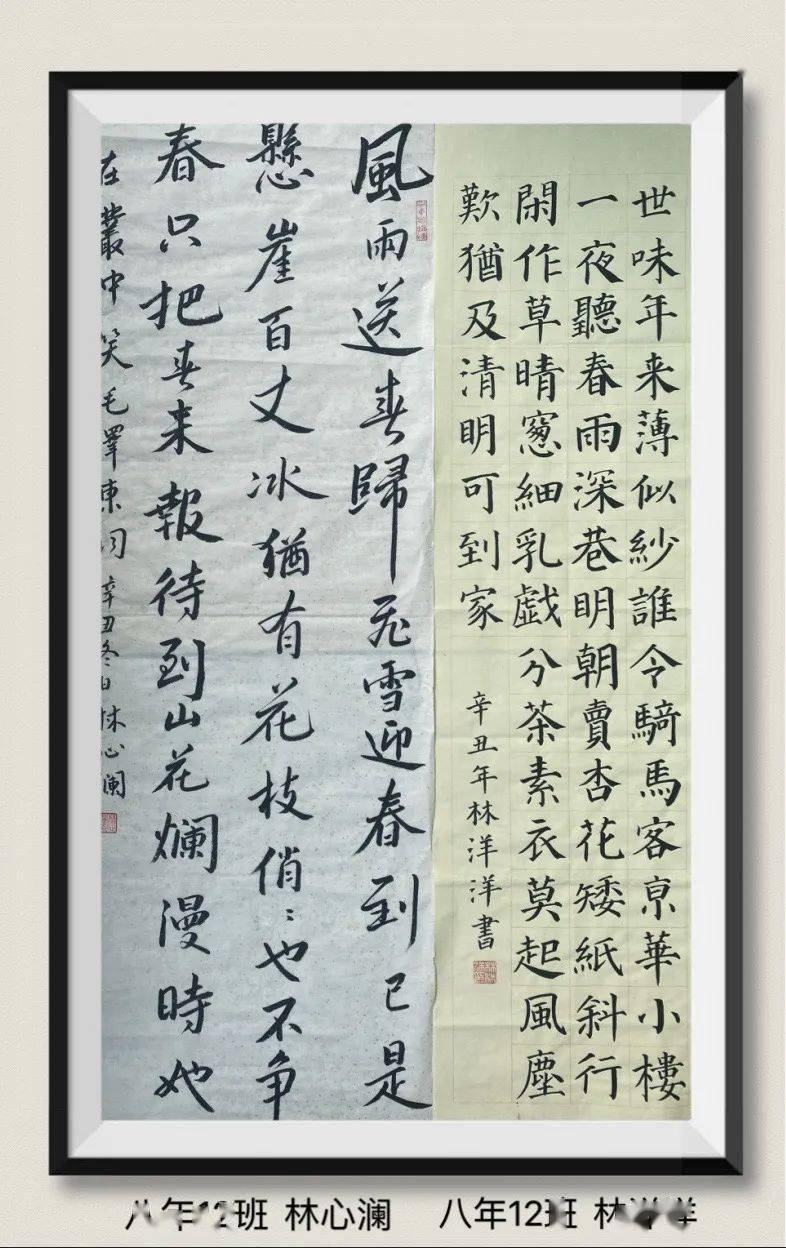 世味年来薄似紗誰令騎馬客亰華小樓
一夜聽春雨深巷明朝賣杏花矮紙斜行
閑作草晴窻細乳戯分茶素衣莫起風塵
歎猶及清明可到家
辛丑年林洋洋書
風雨送春歸飛雪迎春到已是
懸崖百丈冰猶有花枝俏:也不争
春只把春来報待到山花爛漫時她
在叢中笑毛澤東詞 辛丑冬日林心澜
八年12班 林心澜 八年12班 林洋洋